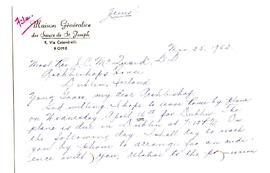 File
Jews
Maison Généralice
des Sœurs de St Joseph
ROME
Mar. 25. 1952
Most Rev. J. C. McQuaid, D.D.
Archbishop's House
Dublin, Ireland
Your Grace, my dear Archbishop,
God willing I hope to come by plane
on Wednesday April for Dublin. The
plane is due in Dublin at
following day I shall try to reach
you by phone to arrange for an audi-
ence with you, relative to the